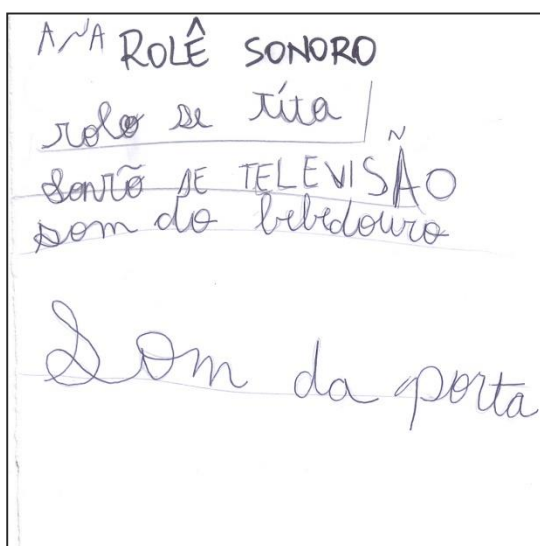 ANA ROLÊ SONORO
rolo se tita
sontõ DE TELEVISÃO
som do bebedouro
Som da porta